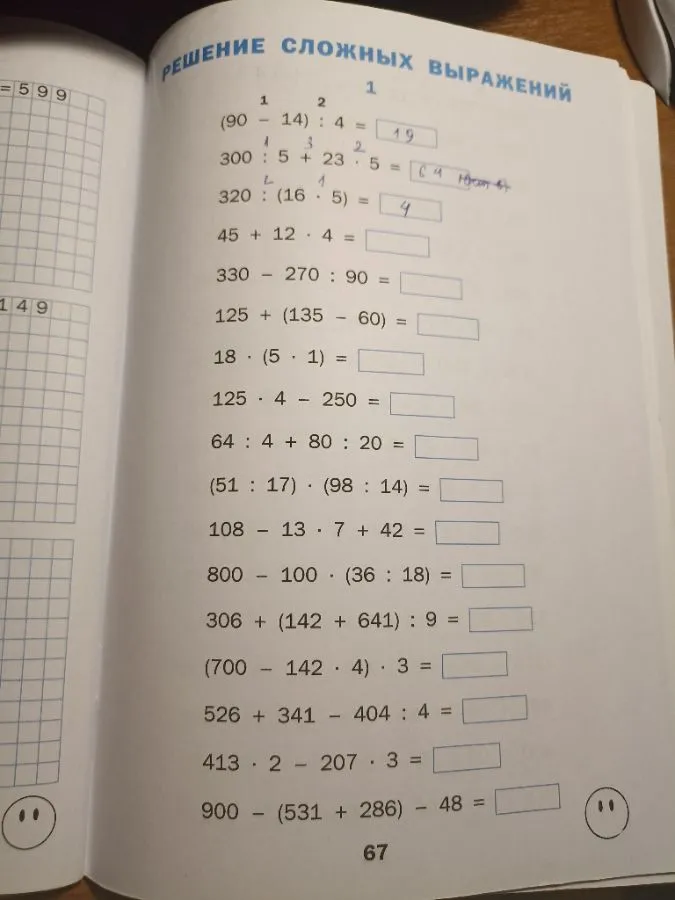 = 5 9 9
1 4 9
РЕШЕНИЕ СЛОЖНЫХ ВЫРАЖЕНИЙ
1
1 2
(90 − 14) : 4 = 19
1 3 2
300 : 5 + 23 · 5 =
2 1
320 : (16 · 5) = 4
45 + 12 · 4 =
330 − 270 : 90 =
125 + (135 − 60) =
18 · (5 · 1) =
125 · 4 − 250 =
64 : 4 + 80 : 20 =
(51 : 17) · (98 : 14) =
108 − 13 · 7 + 42 =
800 − 100 · (36 : 18) =
306 + (142 + 641) : 9 =
(700 − 142 · 4) · 3 =
526 + 341 − 404 : 4 =
413 · 2 − 207 · 3 =
900 − (531 + 286) − 48 =
67